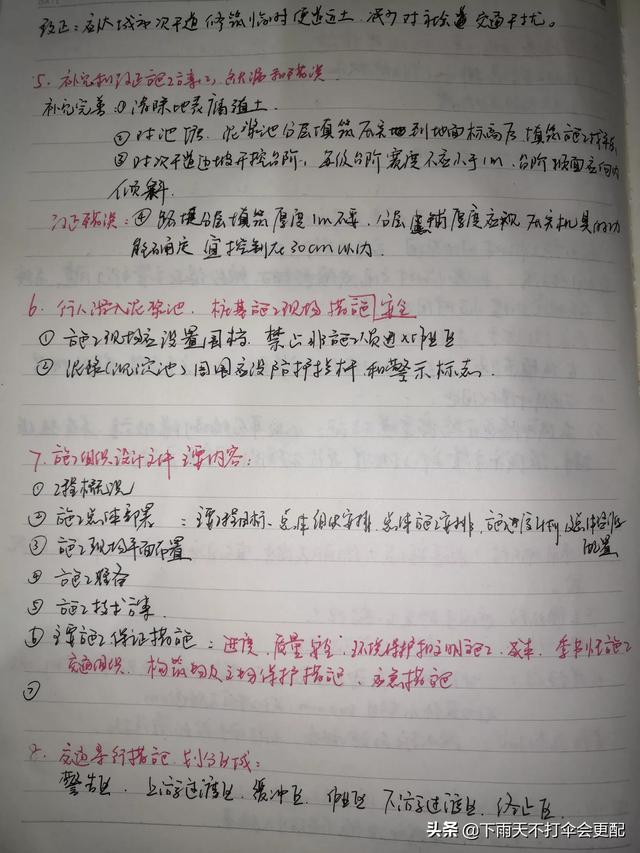 改正：应从城市次干道修筑临时便道运土，减少对主干道交通干扰。
5. 补充和改正施工方案(2)，的遗漏和错误
补充完善：① 清除地表腐殖土
② 对池塘、泥浆池分层填筑压实到地面标高后，填筑施工
③ 对次干道边坡开挖台阶，每级台阶宽度不应小于1m，台阶顶面应向内
倾斜.
改正错误：④ 路堤分层填筑厚度1m不妥，分层虚铺厚度应视压实机具的功
能确定 宜控制在30cm以内.
6. 行人潜入泥浆池，桩基施工现场措施安全
① 施工现场应设置围挡，禁止非施工人员进入作业区
② 泥浆(沉淀池)周围应设防护栏杆和警示标志.
7. 施工组织设计文件主要内容：
① 工程概况
② 施工总体部署：主要工程目标、总体组织安排、总体施工安排、施工进度计划及总体资源
配置
③ 施工现场平面布置
④ 施工准备
⑤ 施工技术方案.
⑥ 主要施工保证措施：进度、质量安全、环境保护和文明施工、成本、季节性施工
交通组织、构筑物及文物保护措施、应急措施
⑦
8. 交通导行措施，划分区域：
警告区、上游过渡区、缓冲区、作业区 下游过渡区、终止区.
头条 @下雨天不打伞会更配